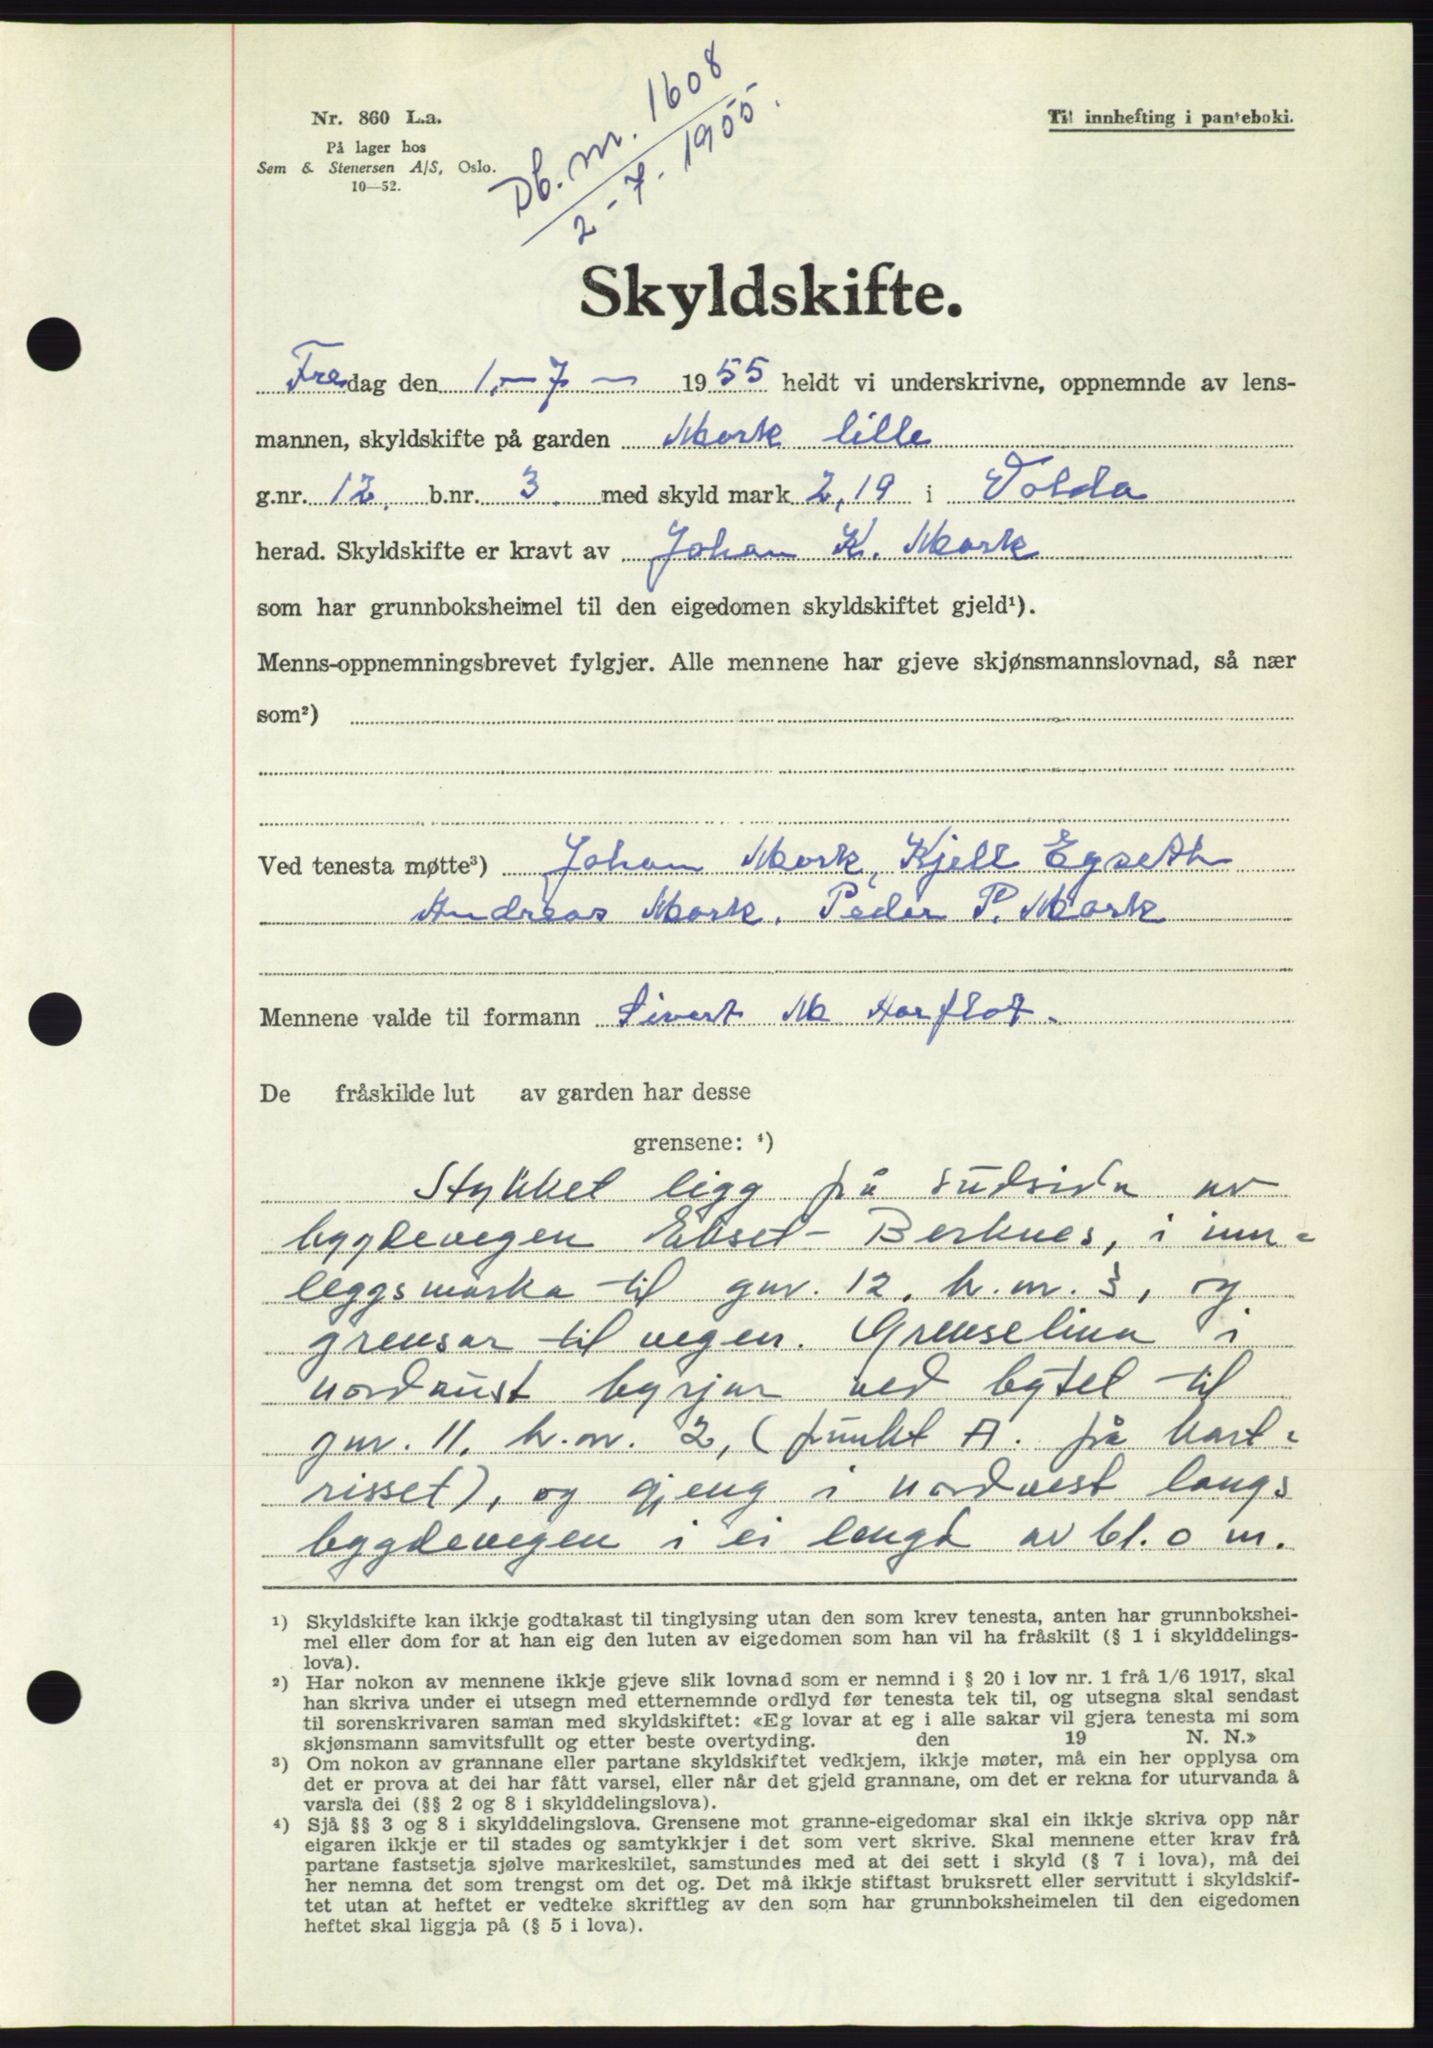 Nr. 860 L.a.
På lager hos
Sem & Stenersen A/S, Oslo.
10—52.
Db. nr. 1608
2-7. 1955.
Til innhefting i panteboki.
Skyldskifte.
Fredag den 1.-7- 1955 heldt vi underskrivne, oppnemnde av lens-
mannen, skyldskifte på garden Mork lille
g.nr. 12, b.nr. 3. med skyld mark 2,19 i Volda
herad. Skyldskifte er kravt av Johan K. Mork
som har grunnboksheimel til den eigedomen skyldskiftet gjeld¹).
Menns-oppnemningsbrevet fylgjer. Alle mennene har gjeve skjønsmannslovnad, så nær
som²)
Ved tenesta møtte³) Johan Mork, Kjell Egseth
Andreas Mork. Peder P. Mork
Mennene valde til formann Sivert M Aarflot.
De fråskilde lut av garden har desse
grensene: ⁴)
Stykket ligg på sudsida av
bygdevegen Ekset- Berknes, i inn-
leggsmarka til gnr. 12, b.nr. 3, og
grensar til vegen. Grenselina i
nordaust byrjar ved bytet til
gnr. 11, b.nr. 2, (punkt A. på kart-
risset), og gjeng i nordvest langs
bygdevegen i ei lengd av 61.0 m.
¹) Skyldskifte kan ikkje godtakast til tinglysing utan den som krev tenesta, anten har grunnbokshei-
mel eller dom for at han eig den luten av eigedomen som han vil ha fråskilt (§ 1 i skylddelings-
lova).
²) Har nokon av mennene ikkje gjeve slik lovnad som er nemnd i § 20 i lov nr. 1 frå 1/6 1917, skal
han skriva under ei utsegn med etternemnde ordlyd før tenesta tek til, og utsegna skal sendast
til sorenskrivaren saman med skyldskiftet: «Eg lovar at eg i alle sakar vil gjera tenesta mi som
skjønsmann samvitsfullt og etter beste overtyding. den 19 N. N.»
³) Om nokon av grannane eller partane skyldskiftet vedkjem, ikkje møter, må ein her opplysa om
det er prova at dei har fått varsel, eller når det gjeld grannane, om det er rekna for uturvanda å
varsla dei (§§ 2 og 8 i skylddelingslova).
⁴) Sjå §§ 3 og 8 i skylddelingslova. Grensene mot granne-eigedomar skal ein ikkje skriva opp når
eigaren ikkje er til stades og samtykkjer i det som vert skrive. Skal mennene etter krav frå
partane fastsetja sjølve markeskilet, samstundes med at dei sett i skyld (§ 7 i lova), må dei
her nemna det som trengst om det og. Det må ikkje stiftast bruksrett eller servitutt i skyldskif-
tet utan at heftet er vedteke skriftleg av den som har grunnboksheimelen til den eigedomen
heftet skal liggja på (§ 5 i lova).